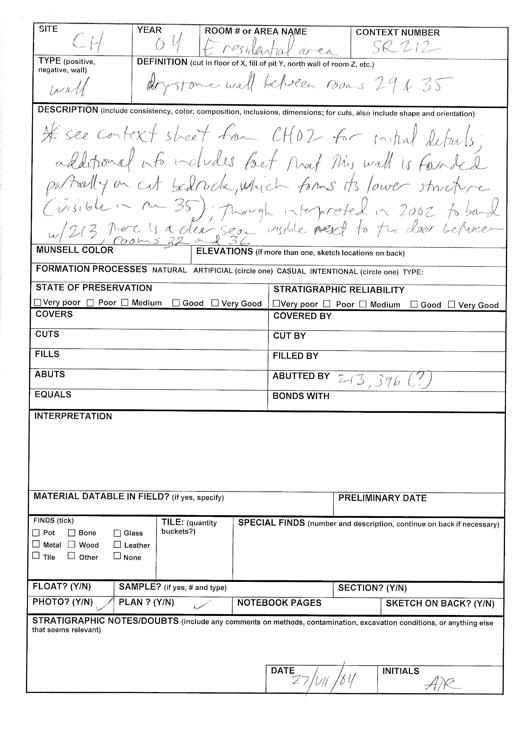 SITE CH YEAR 04 ROOM # or AREA NAME E residential area CONTEXT NUMBER SR212
TYPE (positive, negative, wall) wall DEFINITION (cut in floor of X, fill of pit Y, north wall of room Z, etc.) drystone wall between rooms 29 & 35
DESCRIPTION (include consistency, color, composition, inclusions, dimensions; for cuts, also include shape and orientation)
* see context sheet from CH02 for initial details;
additional info includes fact that this wall is founded
partially on cut bedrock, which forms its lower structure
(visible in rm 35); though interpreted in 2002 to bond
w/213 there is a clear seam visible next to the door between
rooms 32 and 36
MUNSELL COLOR ELEVATIONS (if more than one, sketch locations on back)
FORMATION PROCESSES NATURAL ARTIFICIAL (circle one) CASUAL INTENTIONAL (circle one) TYPE:
STATE OF PRESERVATION STRATIGRAPHIC RELIABILITY
Very poor Poor Medium Good Very Good Very poor Poor Medium Good Very Good
COVERS COVERED BY
CUTS CUT BY
FILLS FILLED BY
ABUTS ABUTTED BY 213, 396 (?)
EQUALS BONDS WITH
INTERPRETATION
MATERIAL DATABLE IN FIELD? (if yes, specify) PRELIMINARY DATE
FINDS (tick) TILE: (quantity buckets?) SPECIAL FINDS (number and description, continue on back if necessary)
Pot Bone Glass
Metal Wood Leather
Tile Other None
FLOAT? (Y/N) SAMPLE? (if yes, # and type) SECTION? (Y/N)
PHOTO? (Y/N) ✓ PLAN ? (Y/N) ✓ NOTEBOOK PAGES SKETCH ON BACK? (Y/N)
STRATIGRAPHIC NOTES/DOUBTS (include any comments on methods, contamination, excavation conditions, or anything else
that seems relevant)
DATE 27/VII/04 INITIALS ADR